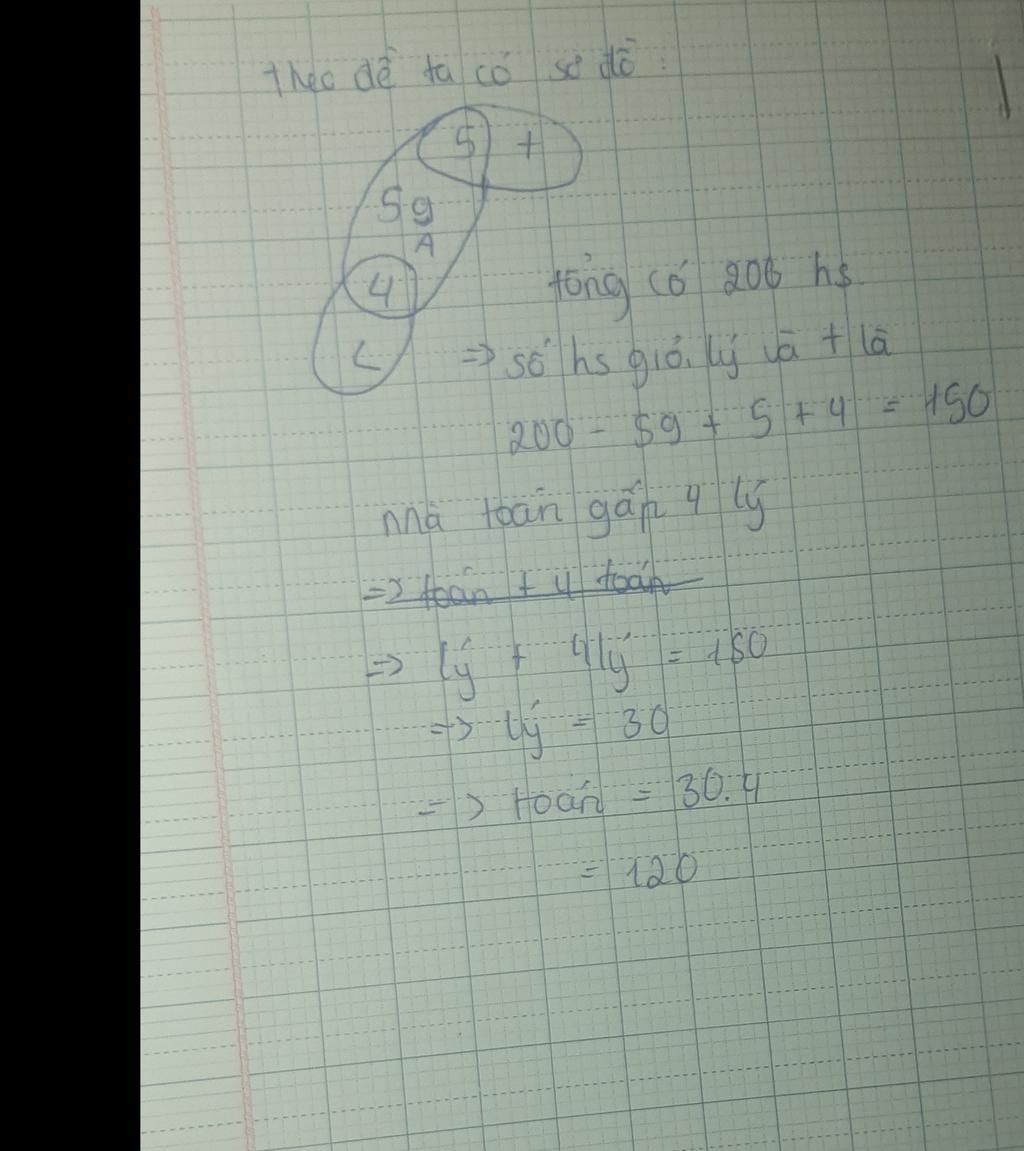 theo đề ta có sơ đồ:
5 +
59
A
4
L
tổng có 200 hs
=> số hs giỏi lý và t là
200 - 59 + 5 + 4 = 150
mà toán gấp 4 lý
=> toán + 4 toán
=> lý + 4 lý = 150
=> lý = 30
=> toán = 30.4
= 120